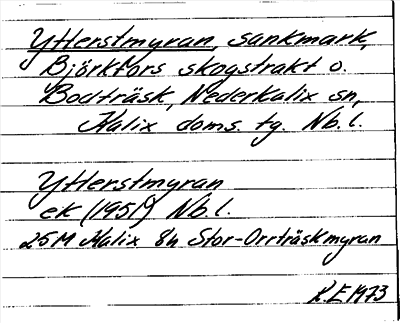 Ytterstmyran, sankmark,
Björkfors skogstrakt o.
Bodträsk, Nederkalix sn,
Kalix doms. tg. Nb. l.
Ytterstmyran
ek (1951) Nb. l.
25M Kalix 8h Stor-Orrträskmyran
R.E 1973